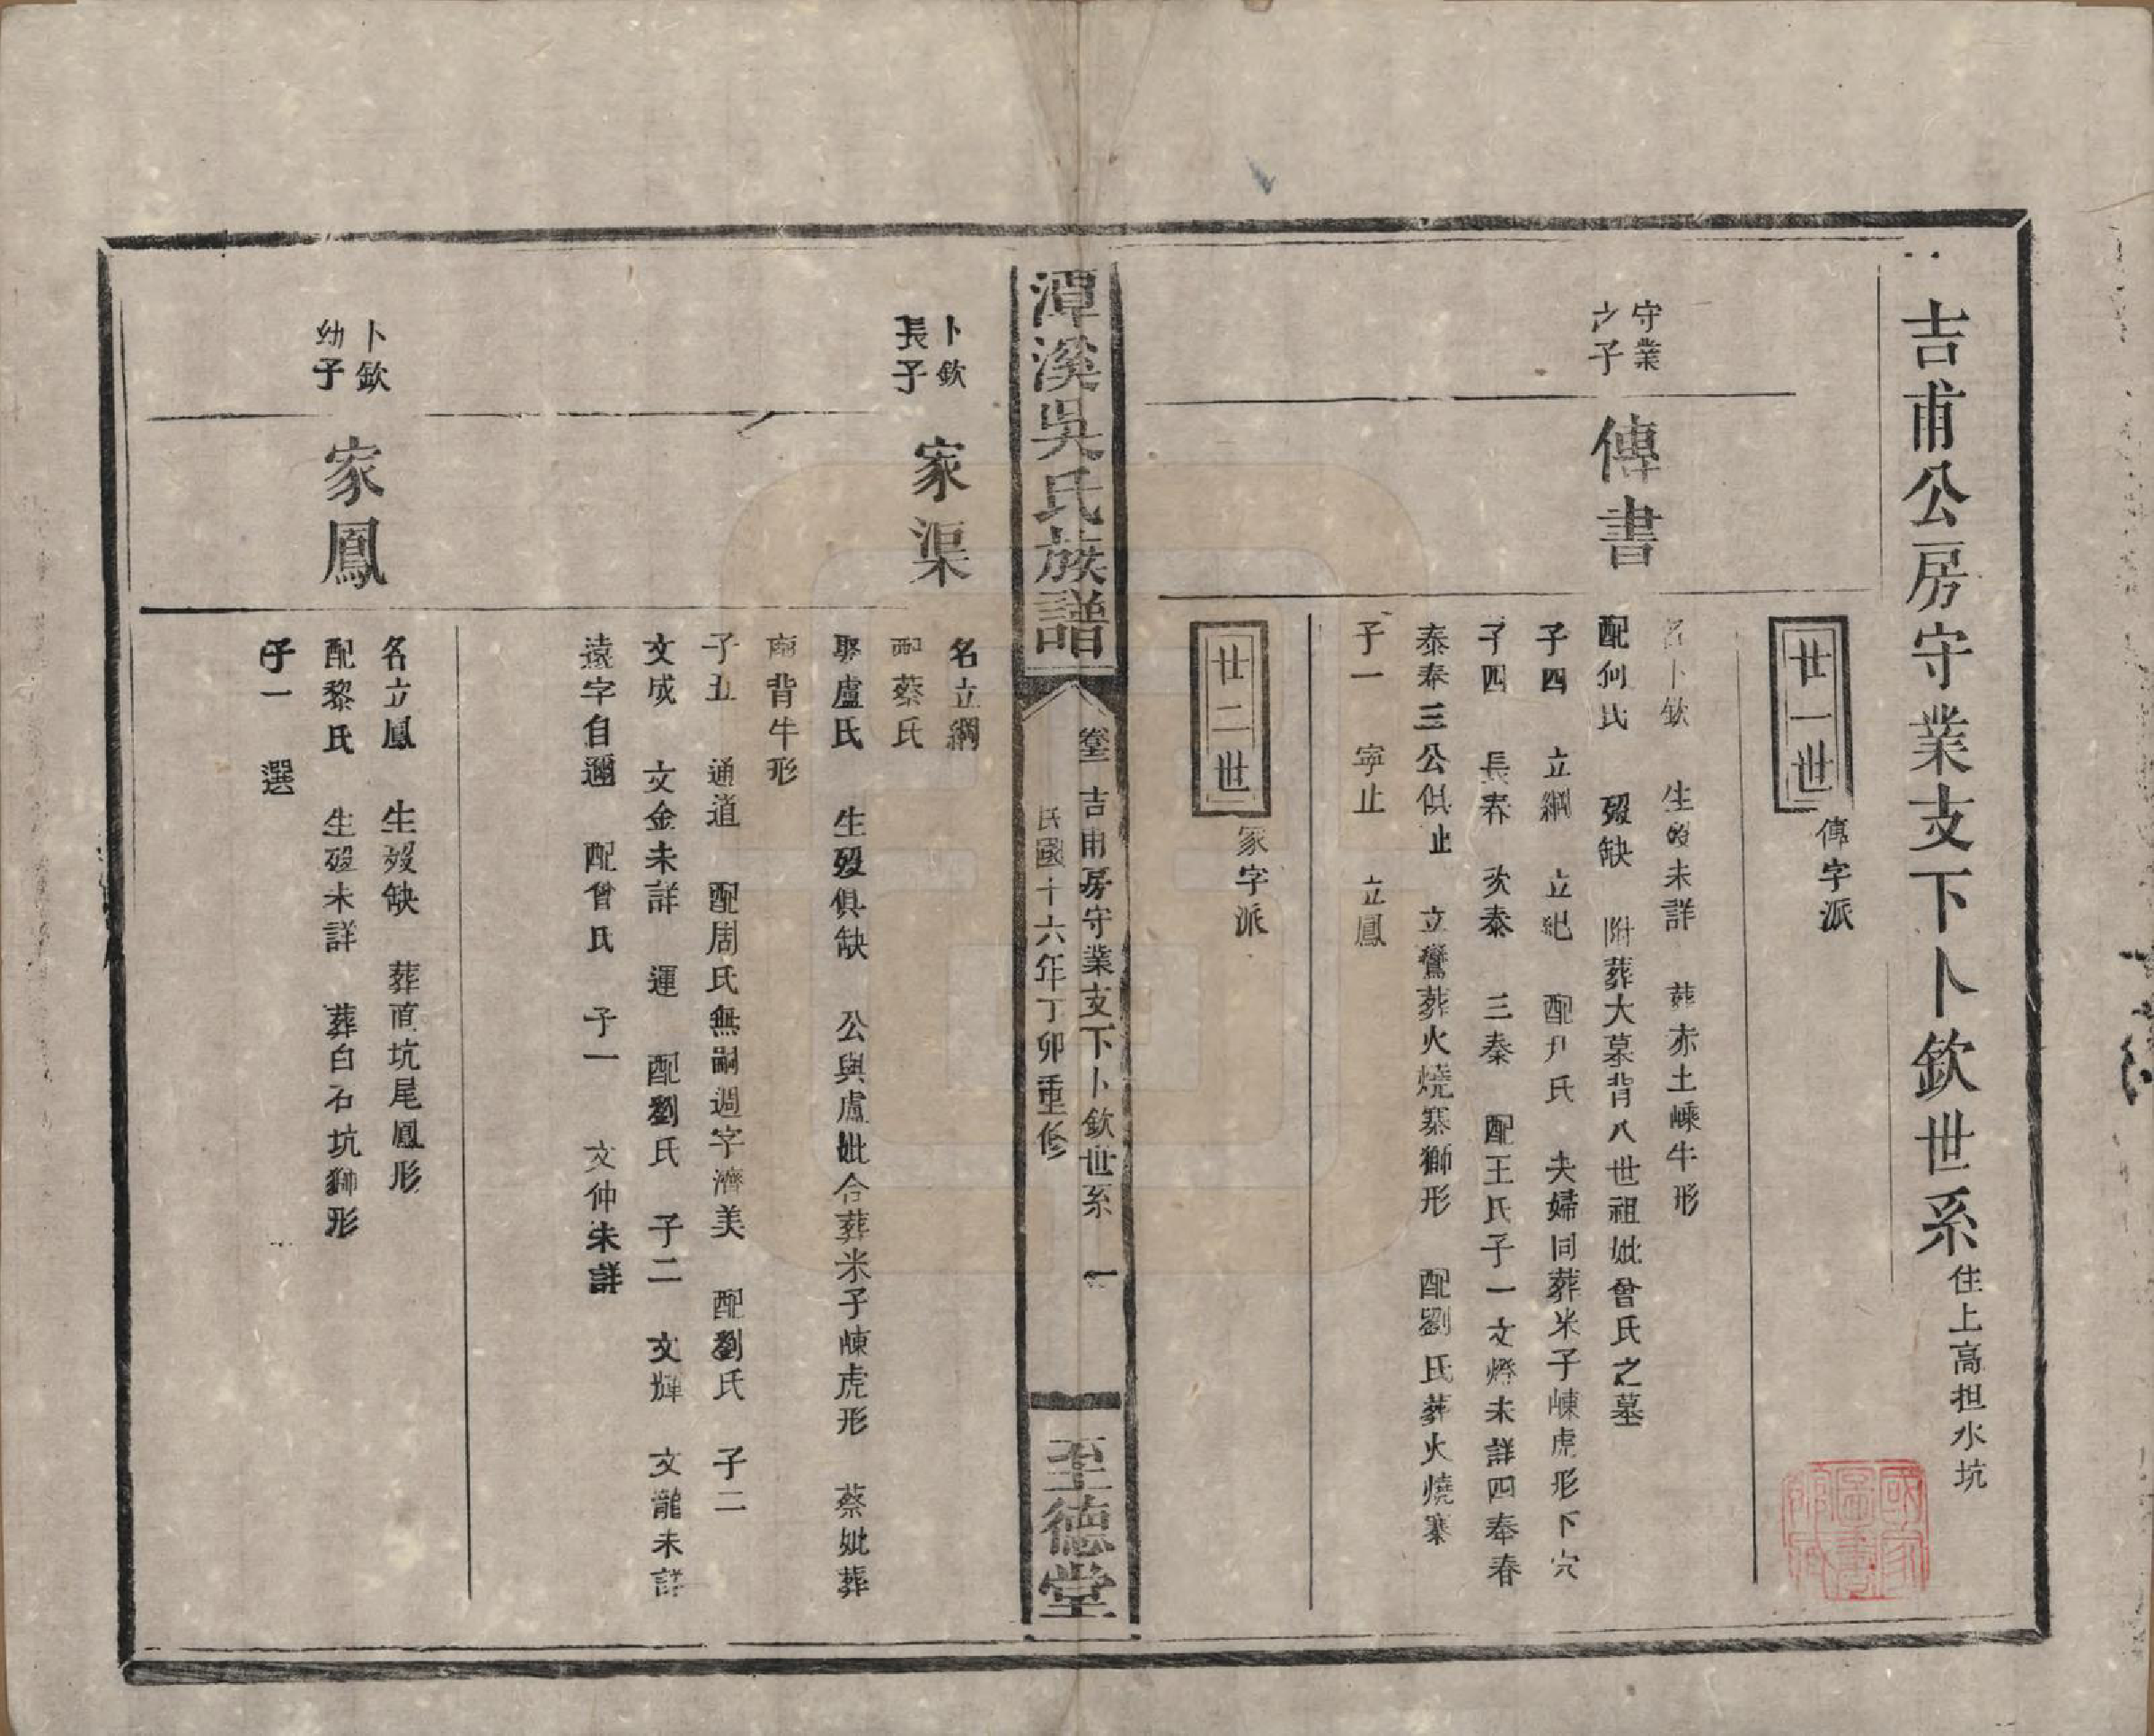 吉甫公房守業支下卜欽世系 住上高担水坑
廿一世 傳字派
守業
之子
傳書
名卜欽 生歿未詳 葬赤土嵊牛形
配何氏 歿缺 附葬大墓背八世祖妣曾氏之墓
子四 立綱 立紀 配尹氏 夫婦同葬米子崠虎形下穴
子四 長春 次泰 三秦 配王氏子一文燈未詳四奉春
泰奉三公俱止 立鸞葬火燒寨獅形 配劉氏葬火燒寨
子一 寧止 立鳳
廿二世 家字派
潭溪吳氏族譜
吉甫房守業支下卜欽世系 一
民國十六年丁卯重修
至德堂
卜欽
長子
家渠
名立綱
配蔡氏
娶盧氏 生歿俱缺 公與盧妣合葬米子崠虎形 蔡妣葬
廟背牛形
子五 通道 配周氏無嗣週字濟美 配劉氏 子二
文成 文金未詳 運 配劉氏 子二 文輝 文龍未詳
遠字自邇 配曾氏 子一 文仲未詳
卜欽
幼子
家鳳
名立鳳 生歿缺 葬直坑尾鳳形
配黎氏 生歿未詳 葬白石坑獅形
子一 選